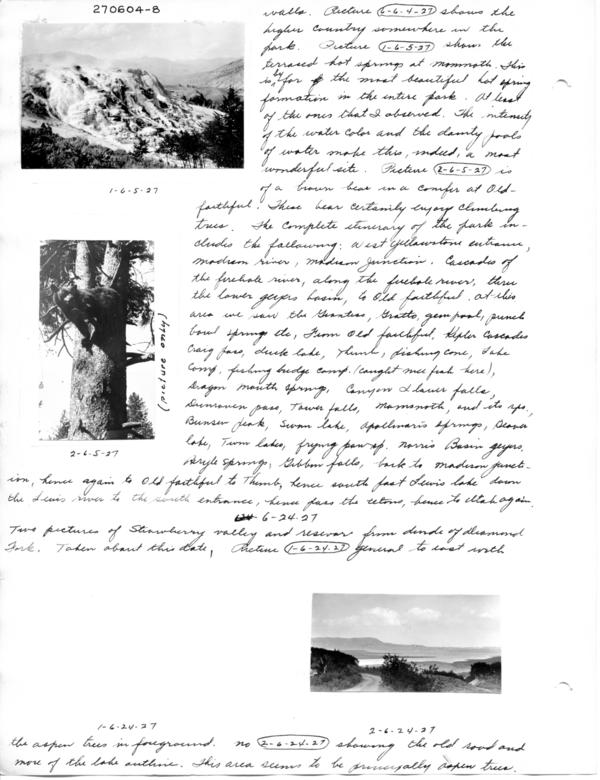 270604-8
walls. Picture 6-6-4-27 shows the
higher country somewhere in the
park. Picture 1-6-5-27 shows the
terraced hot springs at mammoth. This
is by far the most beautiful hot spring
formation in the entire park. At least
of the ones that I observed. The intensity
of the water color and the dainty pools
of water make this, indeed, a most
wonderful site. Picture 2-6-5-27 is
of a brown bear in a conifer at Old-
faithful. These bear certainly enjoy climbing
trees. The complete itinerary of the park in-
cludes the following: West Yellowstone entrance,
madison river, madison junction. Cascades of
the firehole river, along the firehole river, thru
the lower geyers basin, to Old faithful. At this
area we saw the Giantess, Grotto, gem pool, punch
bowl springs etc, From Old faithful, Kepler Cascades
Craig pass, duck lake, Thumb, fishing cone, Lake
Camp, fishing bridge camp. (caught nice fish here),
Dragon mouth springs, Canyon & lower falls,
Dunraven pass, Tower falls, Mammoth, and its sps.,
Bunsen peak, Swan lake, Apollinaris springs, Beaver
lake, Twin lakes, frying pan sp. Norris Basin geyers,
Beryle Springs, Gibbon falls, back to Madison junct-
ion, hence again to Old faithful to Thumb, hence south past Lewis lake down
the Lewis river to the south entrance, hence pass the tetons, hence to Utah again.
1-6-5-27
(picture only)
2-6-5-27
6-24-27
Two pictures of Strawberry valley and resevoar from divide of diamond
Fork. Taken about this date, Picture 1-6-24-27 general to east with
1-6-24-27
2-6-24-27
the aspen trees in foreground. no 2-6-24-27 showing the old road and
more of the lake outline. This area seems to be principally aspen trees.